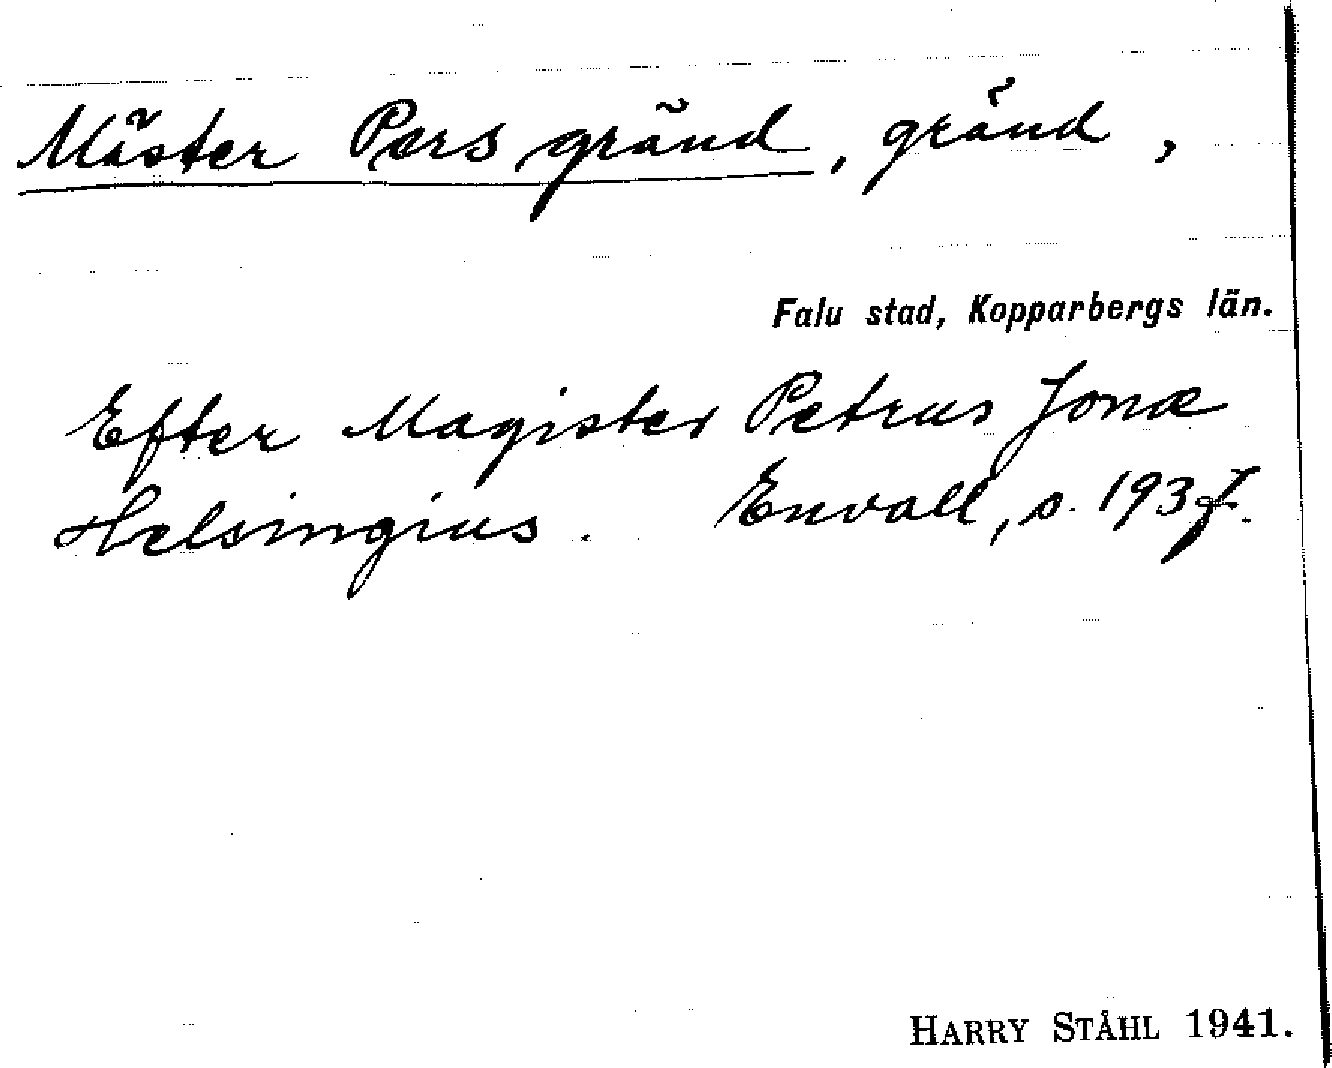 Mäster Pers gränd, gränd,
Falu stad, Kopparbergs län.
Efter Magister Petrus Jonæ
Helsingius. Envall, s. 193 f.
HARRY STÅHL 1941.